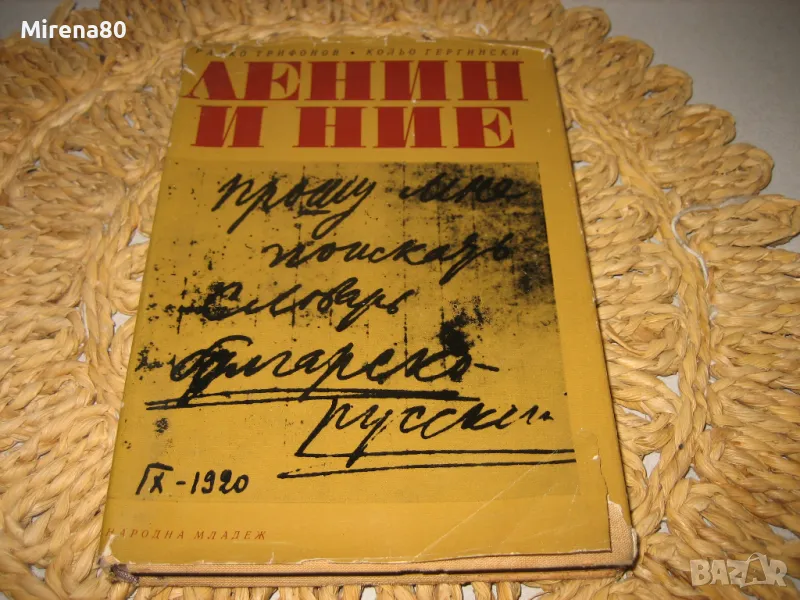 Mirena80
ТРИФОНОВ • КОЛЬО ГЕРГИНСКИ
ЛЕНИН
И НИЕ
прошу мне
поискать
словарь
болгарско-
русский
IX-1920
НАРОДНА МЛАДЕЖ
BAZAR